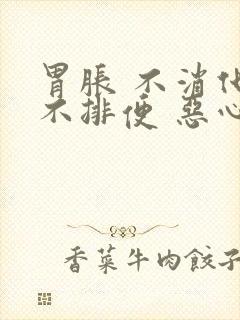 胃脹 不消化
不排便 惡心
香菜牛肉餃子